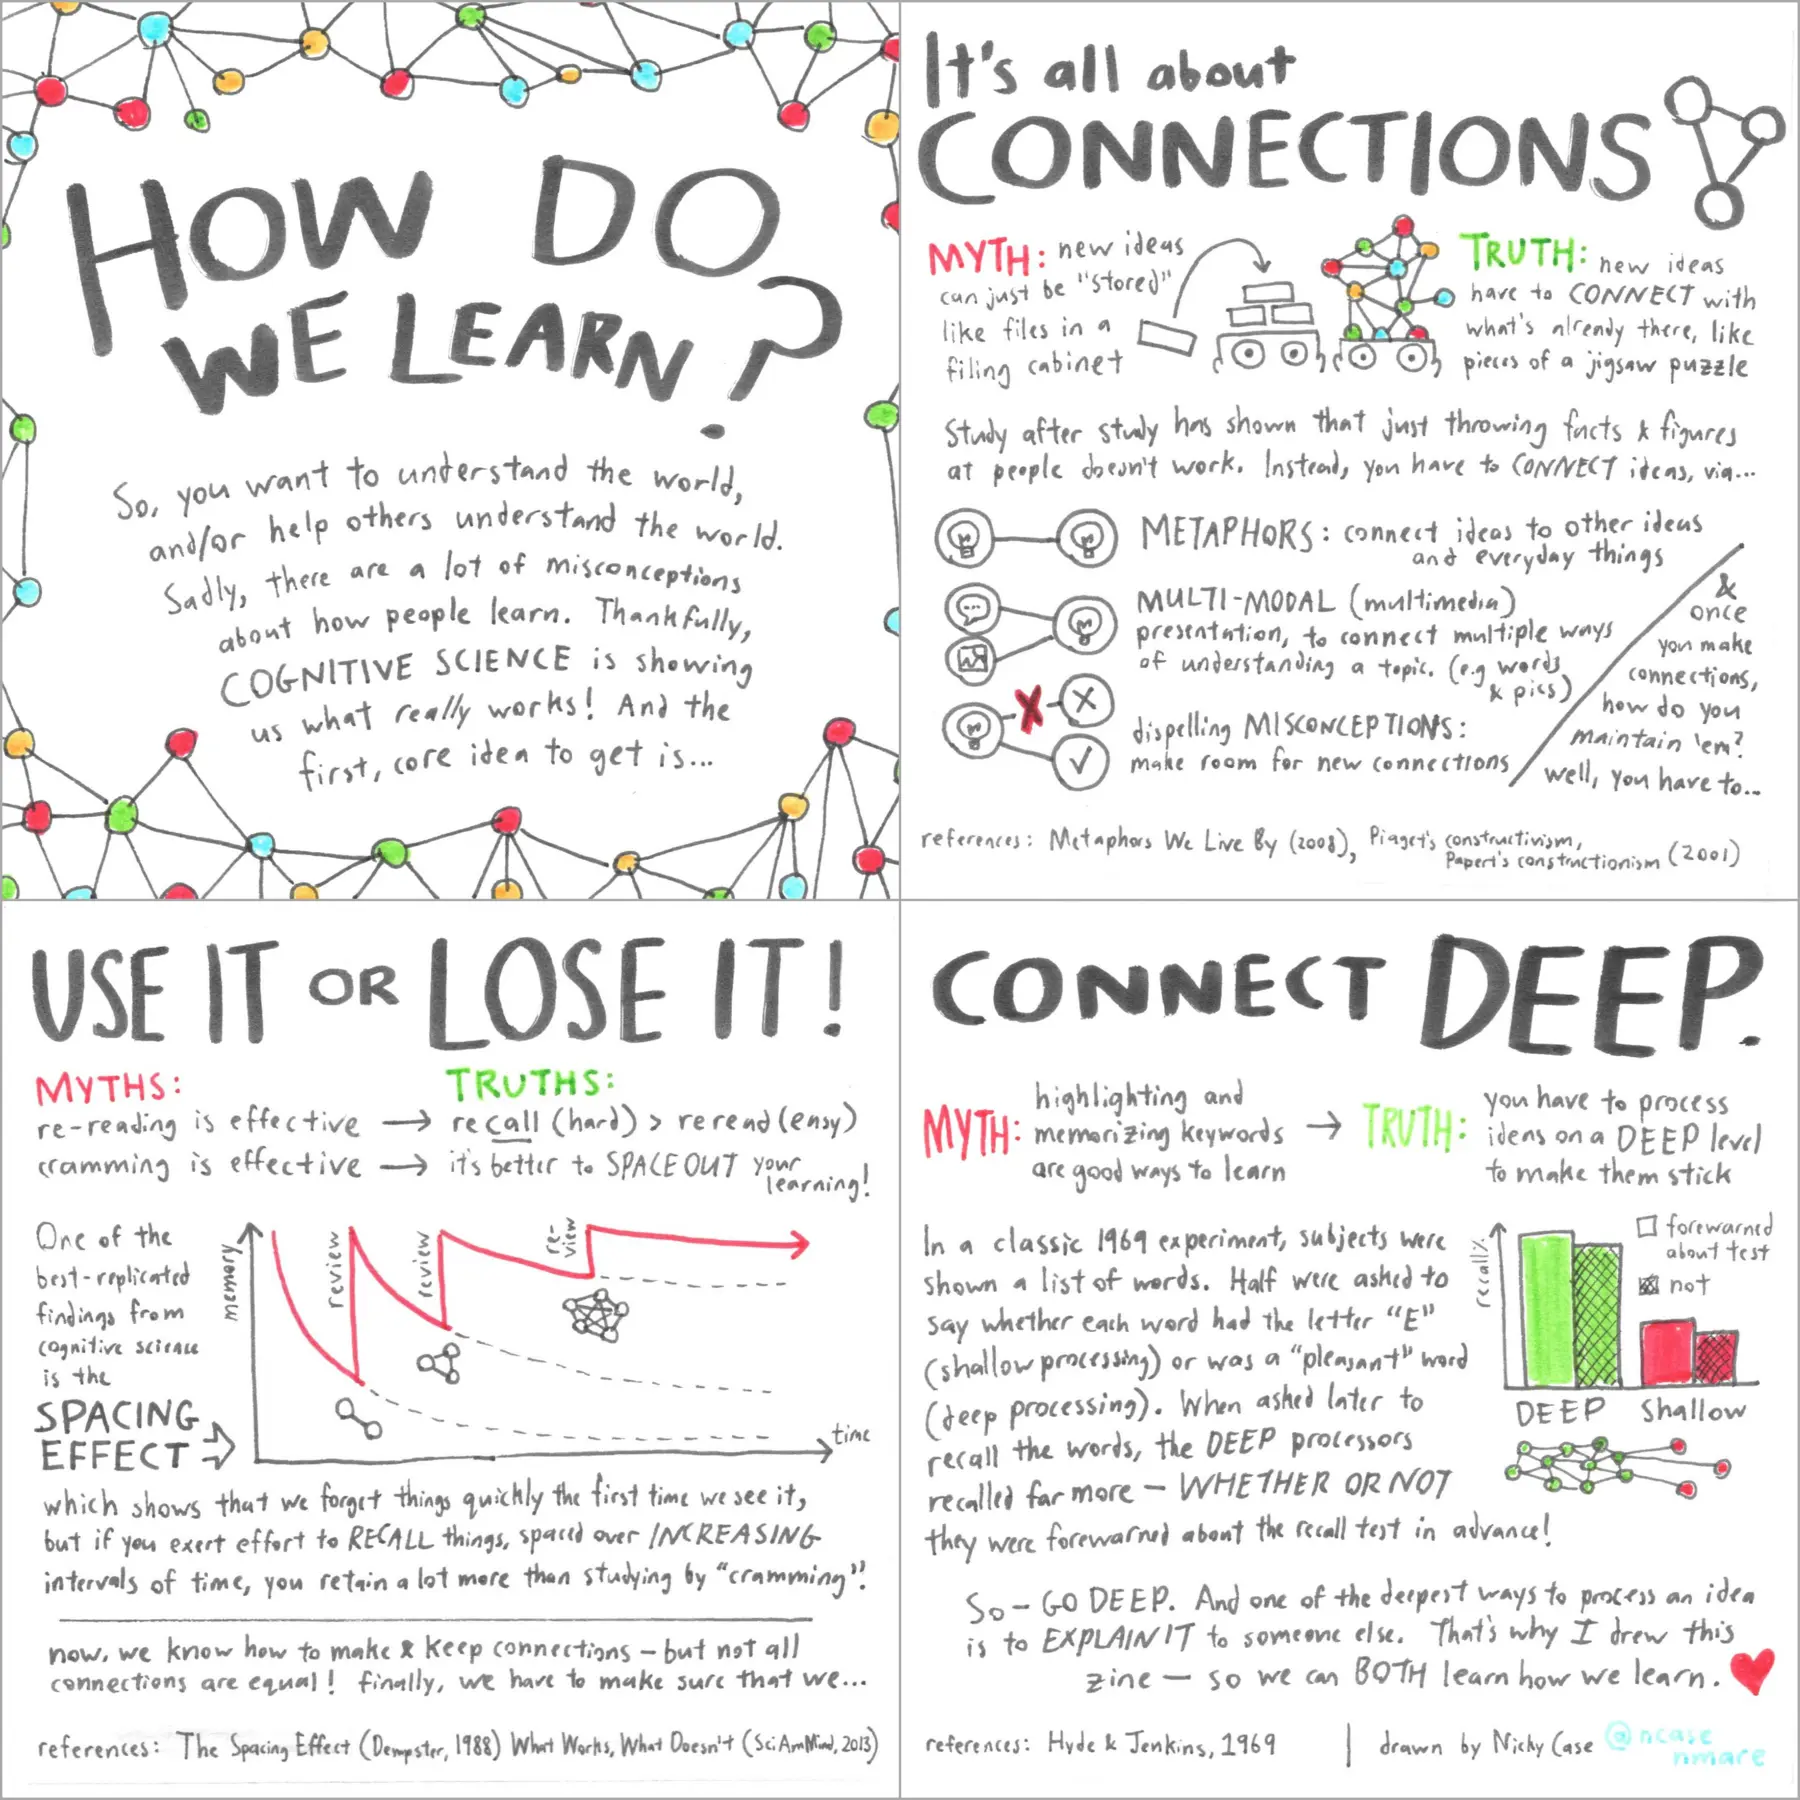 HOW DO
WE LEARN?
So, you want to understand the world,
and/or help others understand the world.
Sadly, there are a lot of misconceptions
about how people learn. Thankfully,
COGNITIVE SCIENCE is showing
us what really works! And the
first, core idea to get is...
It's all about
CONNECTIONS
MYTH: new ideas
can just be "stored"
like files in a
filing cabinet
TRUTH: new ideas
have to CONNECT with
what's already there, like
pieces of a jigsaw puzzle
Study after study has shown that just throwing facts & figures
at people doesn't work. Instead, you have to CONNECT ideas, via...
METAPHORS: connect ideas to other ideas
and everyday things
MULTI-MODAL (multimedia)
presentation, to connect multiple ways
of understanding a topic. (e.g words
& pics)
dispelling MISCONCEPTIONS:
make room for new connections
&
once
you make
connections,
how do you
maintain 'em?
well, you have to...
references: Metaphors We Live By (2008), Piaget's constructivism,
Papert's constructionism (2001)
USE IT OR LOSE IT!
MYTHS:
re-reading is effective →
cramming is effective →
TRUTHS:
recall (hard) > reread (easy)
it's better to SPACE OUT your
learning!
One of the
best-replicated
findings from
cognitive science
is the
SPACING
EFFECT
memory
review
review
re-
view
time
which shows that we forget things quickly the first time we see it,
but if you exert effort to RECALL things, spaced over INCREASING
intervals of time, you retain a lot more than studying by "cramming".
now, we know how to make & keep connections – but not all
connections are equal! finally, we have to make sure that we...
references: The Spacing Effect (Dempster, 1988) What Works, What Doesn't (SciAmMind, 2013)
CONNECT DEEP.
MYTH: highlighting and
memorizing keywords
are good ways to learn
→ TRUTH: you have to process
ideas on a DEEP level
to make them stick
In a classic 1969 experiment, subjects were
shown a list of words. Half were asked to
say whether each word had the letter "E"
(shallow processing) or was a "pleasant" word
(deep processing). When asked later to
recall the words, the DEEP processors
recalled far more – WHETHER OR NOT
they were forewarned about the recall test in advance!
recall%
forewarned
about test
not
DEEP
shallow
So – GO DEEP. And one of the deepest ways to process an idea
is to EXPLAIN IT to someone else. That's why I drew this
zine – so we can BOTH learn how we learn.
references: Hyde & Jenkins, 1969 | drawn by Nicky Case @ncase
nmare